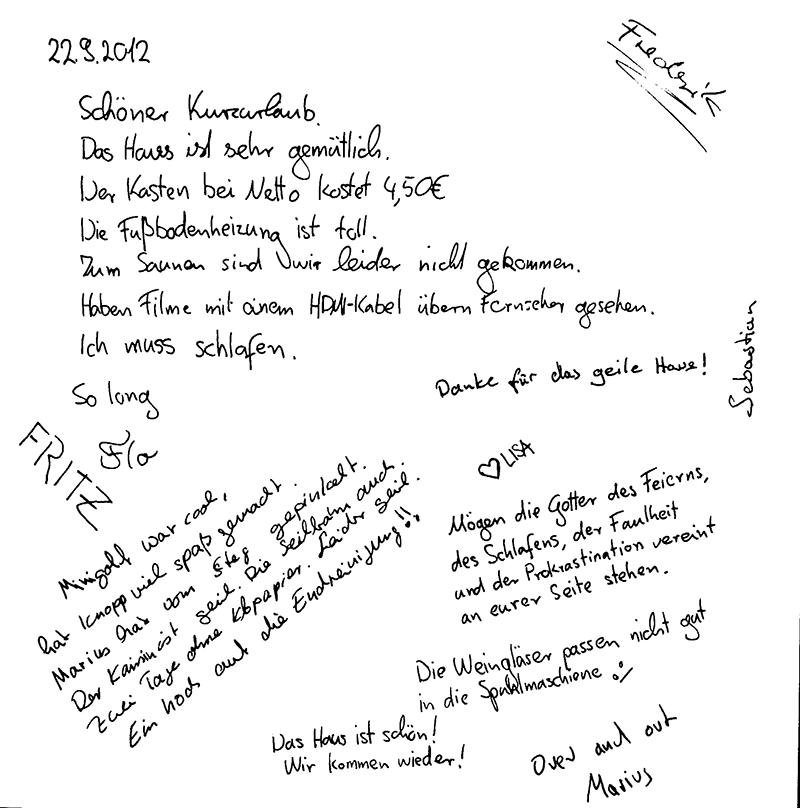 22.9.2012
Frederik
Schöner Kurzurlaub.
Das Haus ist sehr gemütlich.
Der Kasten bei Netto kostet 4,50€
Die Fußbodenheizung ist toll.
Zum Saunen sind wir leider nicht gekommen.
Haben Filme mit einem HDMI-Kabel übern Fernseher gesehen.
Ich muss schlafen.
So long
Flo
Danke für das geile Haus!
Sebastian
FRITZ
♡ LISA
Minigolf war cool,
hat Knopp viel spaß gemacht.
Marius hat vom Steg gepinkelt.
Der Kamin ist geil. Die Seilbahn auch.
Zwei Tage ohne Klopapier. Leider geil.
Ein hoch auf die Endreinigung!!
Mögen die Götter des Feierns,
des Schlafens, der Faulheit
und der Prokrastination vereint
an eurer Seite stehen.
Die Weingläser passen nicht gut
in die Spühlmaschiene :/
Das Haus ist schön!
Wir kommen wieder!
Over and out
Marius